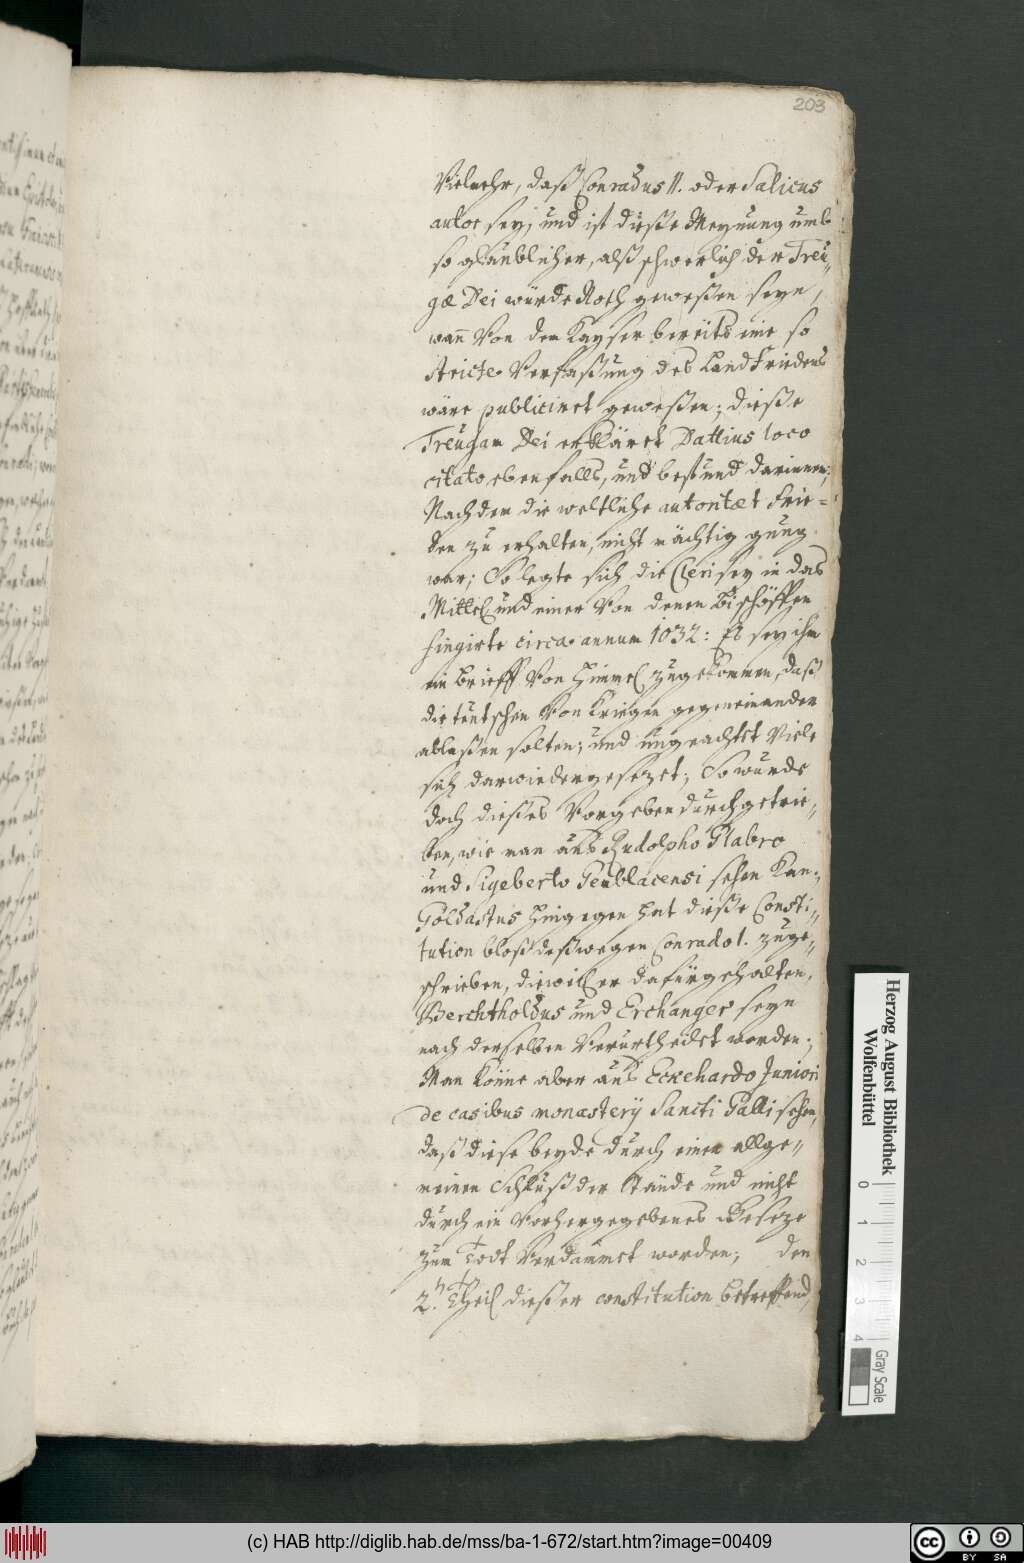 203
Vielmehr, daß Conradus II. oder Salicus
autor sey; und ist dieße Meynung umb
so glaublicher, alß schwerlich der Treu„
gæ Dei würde Noth geweßen seyn,
wann von dem Kayser bereits eine so
stricte Verfaßung des Land Friedens
wäre publiciret geweßen; dieße
Treugam Dei erkläret Dattius loco
citato ebenfalls, und bestund darinnen;
Nachdem die weltliche autoritæt Frie=
den zu erhalten, nicht mächtig gnug
war; So legte sich die Clerisey in das
Mittel und einer von denen Bischöffen
fingirte circa annum 1032: Es sey ihm
ein Brieff von Himmel zugekommen, daß
die teutschen von Kriegen gegeneinander
ablaßen solten; und ungeachtet Viele
sich darwieder gesezet; So wurde
doch dießes Vorgeben durchgetrie„
ben, wie man aus Rudolpho Glabro
und Sigeberto Gemblacensi sehen kan;
Goldastus hingegen hat dieße Consti„
tution bloß deßwegen Conrado I. zuge„
schrieben, dieweil er dafür gehalten,
Berchtholdus und Erchanger seyn
nach derselben Verurtheilet worden;
Man könne aber aus Eckehardo Juniori
de casibus monasterij Sancti Galli sehen,
daß diese beyde durch einen allge„
meinen Schluß der Stände und nicht
durch ein Vorhergegebenes Geseze
zum Todt Verdammet worden; den
2.n Theil dießer constitution betreffend,
Herzog August Bibliothek
Wolfenbüttel
0
1
2
3
4
Gray Scale
(c) HAB http://diglib.hab.de/mss/ba-1-672/start.htm?image=00409
cc BY SA